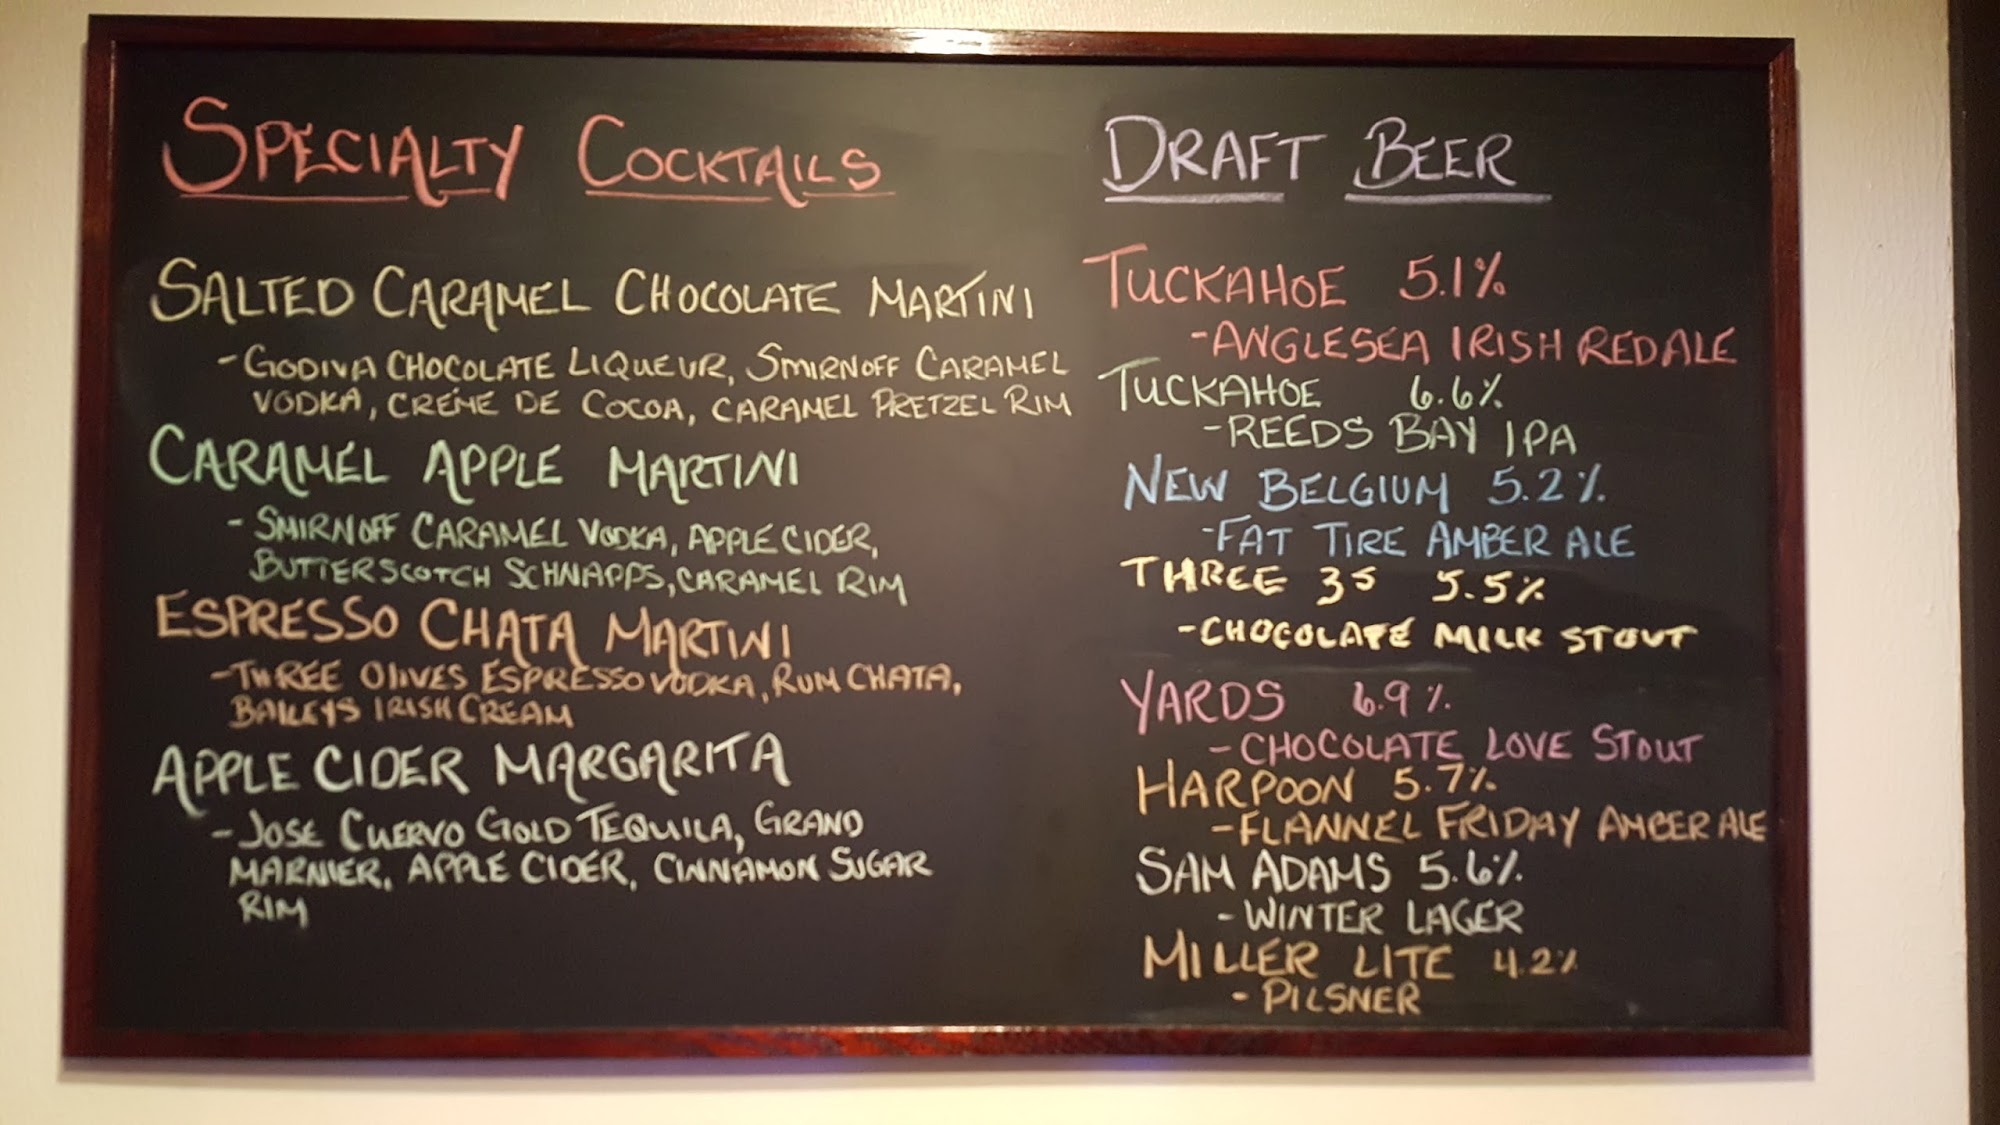 SPECIALTY COCKTAILS
SALTED CARAMEL CHOCOLATE MARTINI
- GODIVA CHOCOLATE LIQUEUR, SMIRNOFF CARAMEL
VODKA, CRÉME DE COCOA, CARAMEL PRETZEL RIM
CARAMEL APPLE MARTINI
- SMIRNOFF CARAMEL VODKA, APPLE CIDER,
BUTTERSCOTCH SCHNAPPS, CARAMEL RIM
ESPRESSO CHATA MARTINI
- THREE OLIVES ESPRESSO VODKA, RUM CHATA,
BAILEYS IRISH CREAM
APPLE CIDER MARGARITA
- JOSE CUERVO GOLD TEQUILA, GRAND
MARNIER, APPLE CIDER, CINNAMON SUGAR
RIM
DRAFT BEER
TUCKAHOE 5.1%
- ANGLESEA IRISH RED ALE
TUCKAHOE 6.6%
- REEDS BAY IPA
NEW BELGIUM 5.2%
- FAT TIRE AMBER ALE
THREE 3S 5.5%
- CHOCOLATE MILK STOUT
YARDS 6.9%
- CHOCOLATE LOVE STOUT
HARPOON 5.7%
- FLANNEL FRIDAY AMBER ALE
SAM ADAMS 5.6%
- WINTER LAGER
MILLER LITE 4.2%
- PILSNER